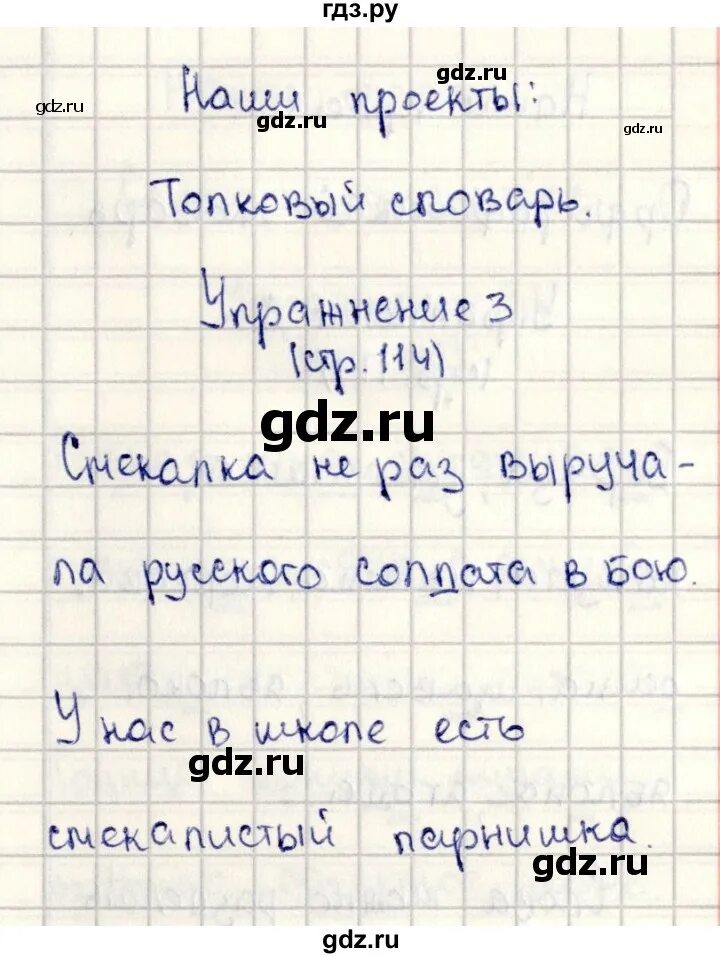 гдз.ру
gdz.ru
gdz.ru
Наши проекты:
gdz.ru
gdz.ru
Толковый словарь.
Упражнение 3
(стр. 114)
gdz.ru
Смекалка не раз выруча-
ла русского солдата в бою.
У нас в школе есть
gdz.ru
смекалистый парнишка.
gdz.ru
gdz.ru